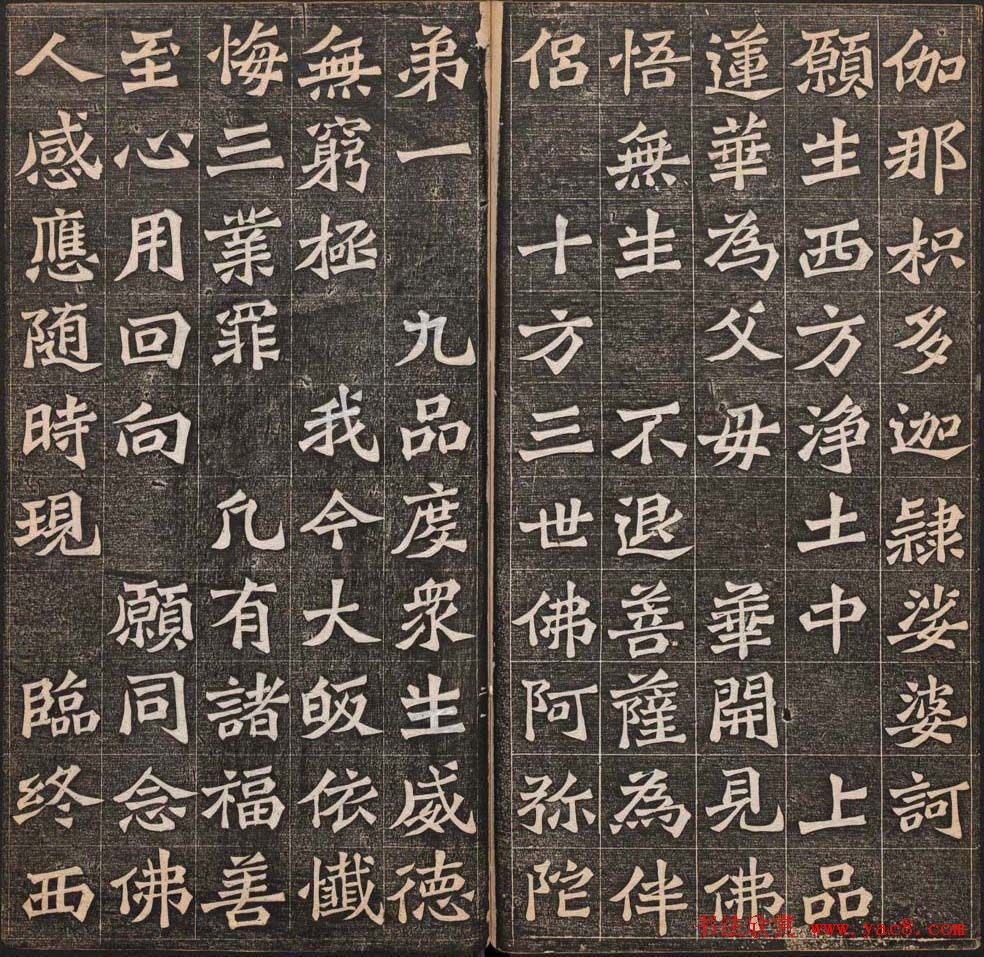 伽那枳多迦隷娑婆訶
願生西方浄土中 上品
蓮華為父毋 華開見佛
悟無生 不退菩薩為伴
侶 十方三世佛阿弥陀
弟一 九品度衆生威徳
無窮極 我今大皈依懺
悔三業罪 凡有諸福善
至心用回向 願同念佛
人感應随時現 臨终西
书法欣赏 www.yac8.com